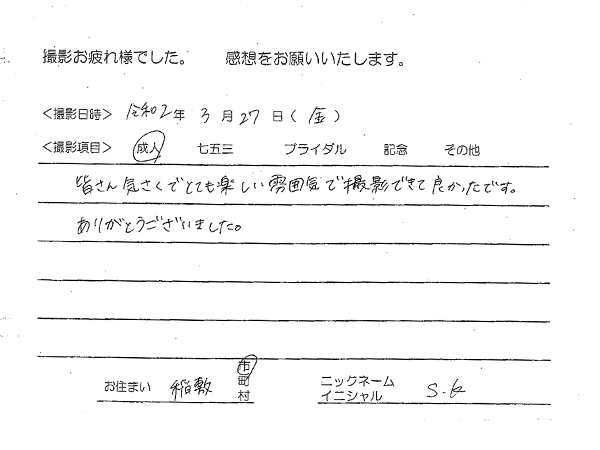 撮影お疲れ様でした。 感想をお願いいたします。
＜撮影日時＞ 令和2年 3月27日(金)
＜撮影項目＞ 成人 七五三 ブライダル 記念 その他
皆さん気さくでとても楽しい雰囲気で撮影できて良かったです。
ありがとうございました。
お住まい 稲敷 市町村 ニックネーム イニシャル S.